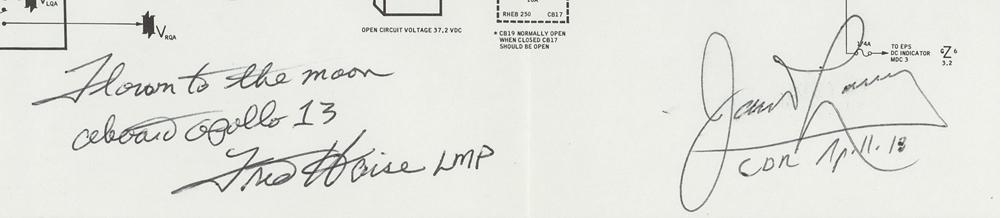 VLQA
VRQA
OPEN CIRCUIT VOLTAGE 37,2 VDC
10A
RHEB 250 CB17
* CB19 NORMALLY OPEN
WHEN CLOSED CB17
SHOULD BE OPEN
1/4A
TO EPS
DC INDICATOR
MDC 3
G Z 6
3,2
Flown to the moon
aboard apollo 13
Fred Haise LMP
James Lovell
CDR Apollo 13